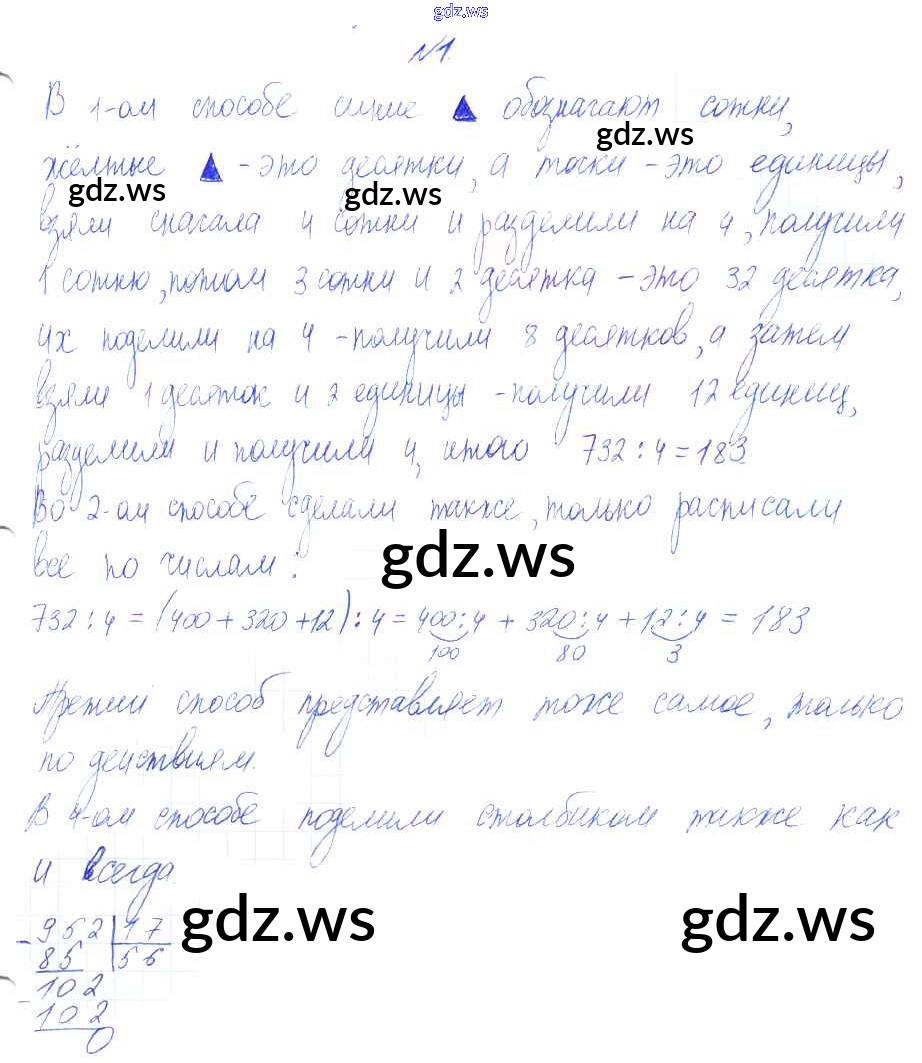 gdz.ws
№1.
В 1-ом способе синие ▲ обозначают сотни,
gdz.ws
жёлтые ▲ - это десятки, а точки - это единицы,
gdz.ws gdz.ws
взяли сначала 4 сотни и разделили на 4, получили
1 сотню, потом 3 сотни и 2 десятка - это 32 десятка,
их поделили на 4 - получили 8 десятков, а затем
взяли 1 десяток и 2 единицы - получили 12 единиц,
разделили и получили 4, итого 732 : 4 = 183
Во 2-ом способе сделали также, только расписали
все по числам:
gdz.ws
732 : 4 = (400 + 320 + 12) : 4 = 400 : 4 + 320 : 4 + 12 : 4 = 183
100 80 3
Третий способ представляет тоже самое, только
по действиям.
В 4-ом способе поделили столбиком также как
и всегда.
gdz.ws gdz.ws
- 952 | 17
85 | 56
- 102
102
0